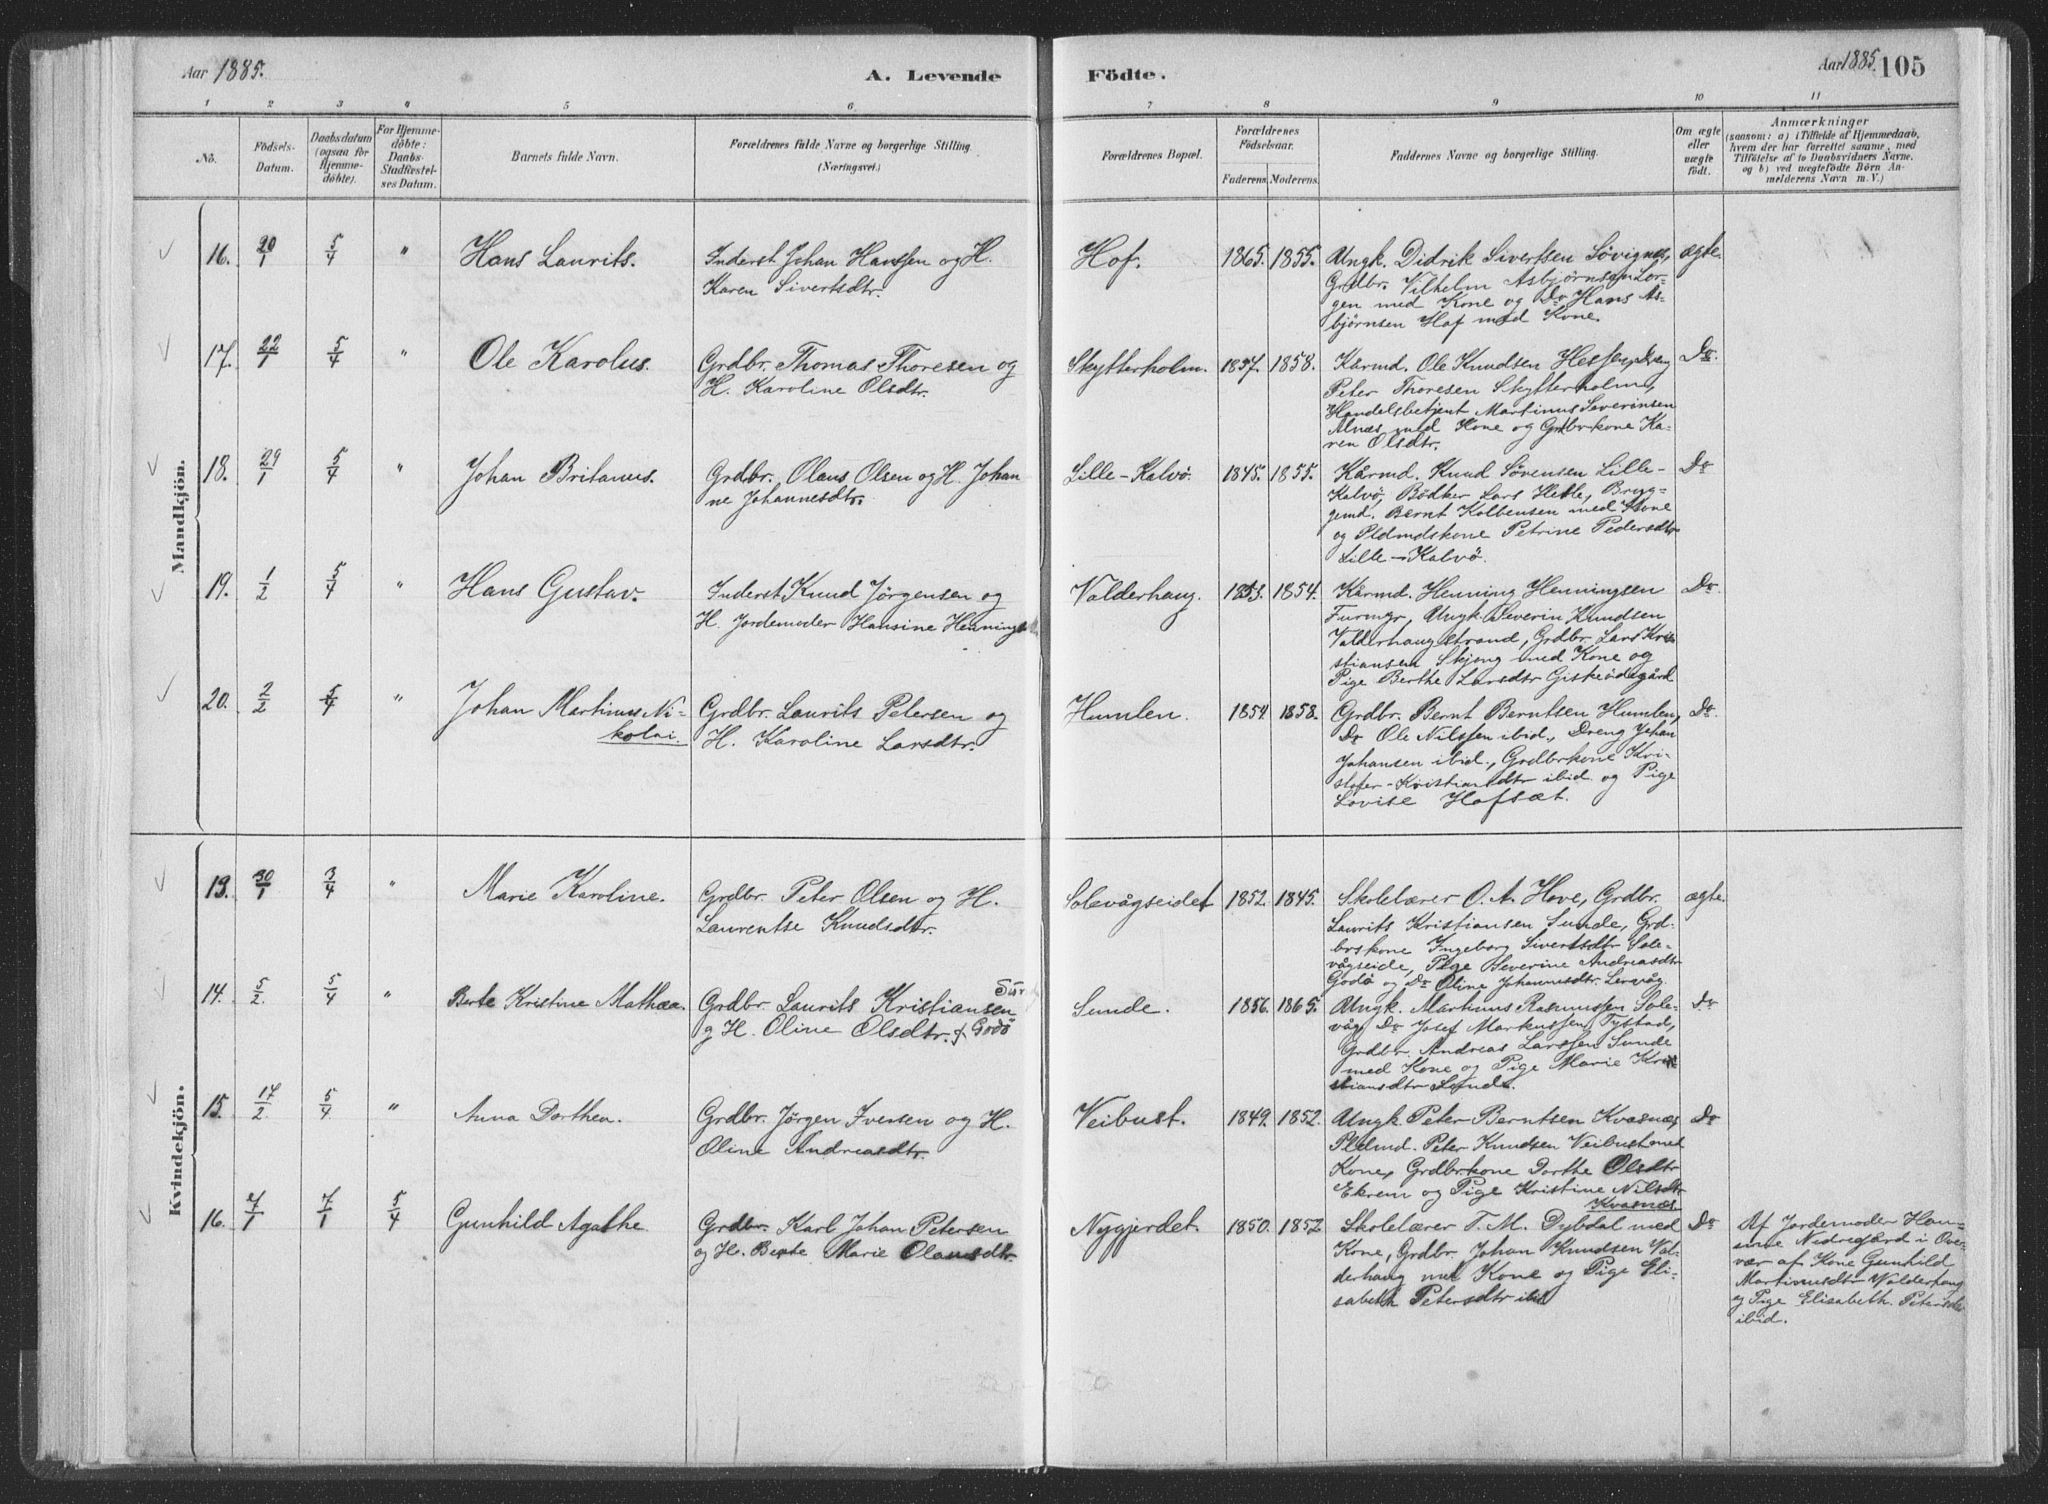 Aar 1885.
A. Levende
Födte.
Aar 1885.
105
1 2 3 4 5 6 7 8 9 10 11
No.
Födsels-
Datum.
Daabsdatum
(ogsaa for
Hjemme-
döbte).
For Hjemme-
döbte:
Daabs-
Stadfæstel-
ses Datum.
Barnets fulde Navn.
Forældrenes fulde Navne og borgerlige Stilling.
(Næringsvei.)
Forældrenes Bopæl.
Forældrenes
Födselsaar.
Faderens. Moderens.
Faddernes Navne og borgerlige Stilling.
Om ægte
eller
uægte
födt.
Anmærkninger
(saasom: a) i Tilfælde af Hjemmedaab,
hvem der har forrettet samme, med
Tilföielse af to Daabsvidners Navne,
og b) ved uægtefödte Börn An-
melderens Navn m. V.)
Mandkjön.
16. 20/1 5/4 " Hans Laurits.
Inderst Johan Hanssen og H.
Karen Sivertsdtr.
Hof. 1865. 1855.
Ungk. Didrik Sivertsen Sövignes,
Grdbr. Vilhelm Asbjørnsen Lor-
gen med Kone og Do Hans As-
bjørnsen Hof med Kone.
ægte.
17. 22/1 5/4 " Ole Karolus.
Grdbr. Thomas Thoresen og
H. Karoline Olsdtr.
Skytterholm. 1857. 1858.
Kårmd. Ole Knudsen Hessen, Dreng
Peter Thoresen Skytterholm,
Handelsbetjent Martinus Severinsen
Alnæs med Kone og Grdbrkone Ka-
ren Olsdtr.
Do
18. 29/1 5/4 " Johan Britanus.
Grdbr. Olaus Olsen og H. Johan
ne Johannesdtr.
Lille-Kalvö. 1845. 1855.
Kårmd. Knud Sövensen Lille-
Kalvö, Bödker Lars Hesle, Bryg-
gemd. Bernt Kolbensen med Kone
og Pldmdskone Petrine Pedersdtr
Lille-Kalvö.
Do
19. 1/2 5/4 " Hans Gustav.
Inderst Knud Jörgensen og
H. Jordemoder Hansine Hennings
Valderhaug. 1853. 1854.
Kårmd. Henning Henningsen
Furmyr, Ungk. Severin Knudsen
Valderhaugstrand, Grdbr. Lars Kri-
stiansen Skjong med Kone og
Pige Berthe Larsdtr Giskeödegård
Do
20. 2/2 5/4 " Johan Martinus Ni-
kolai.
Grdbr. Laurits Petersen og
H. Karoline Larsdtr.
Humlen. 1854 1858.
Grdbr. Bernt Berntsen Humlen,
Do Ole Nilssen ibid., Dreng Johan
Johansen ibid., Grdbrkone Kri-
stofer-Kristiansdtr ibid. og Pige
Lovise Hofsæt.
Do
Kvindekjön.
13. 30/1 3/4 " Marie Karoline.
Grdbr. Peter Olsen og H.
Laurentse Knudsdtr.
Solevågseidet 1852. 1845.
Skolelærer O. A. Hove, Grdbr.
Laurits Kristiansen Sunde, Grd-
brskone Ingeborg Sivertsdtr Sole-
vågseide, Pige Severine Andreasdtr
Godö og Do Oline Johannesdtr. Lervåg.
ægte.
14. 5/2. 5/4 " Berte Kristine Mathea.
Grdbr. Laurits Kristiansen
og H. Oline Olsdtr. f Godö
Sunde. 1856. 1865.
Ungk. Martinus Rasmussen Sole-
våg, Do Josef Markussen Tystad,
Grdbr. Andreas Larssen Sunde
med Kone og Pige Marie Kri-
stiansdtr Sunde.
Do
15. 17/2 5/4 " Anna Dorthea.
Grdbr. Jørgen Iversen og H.
Oline Andreasdtr.
Veibust. 1849. 1852.
Ungk. Peter Berntsen Kvasnæs,
Pldmd. Peter Knudsen Veibust med
Kone, Grdbrkone Dorthe Olsdtr
Ekrem og Pige Kristine Nilsdtr
Kvasnæs.
Do
16. 7/1 7/1 5/4 Gunhild Agathe
Grdbr. Karl Johan Petersen
og H. Berte Marie Olausdtr.
Nygjerdet. 1850. 1852
Skolelærer T. M. Dybdal med
Kone, Grdbr. Johan Knudsen Val-
derhaug med Kone og Pige Eli-
sabeth Petersdtr ibid
Do
Af Jordemoder Han-
sine Nedregård i Over-
vær af Kone Gunhild
Martinusdtr Valderhaug
og Pige Elisabeth Petersdtr
ibid.